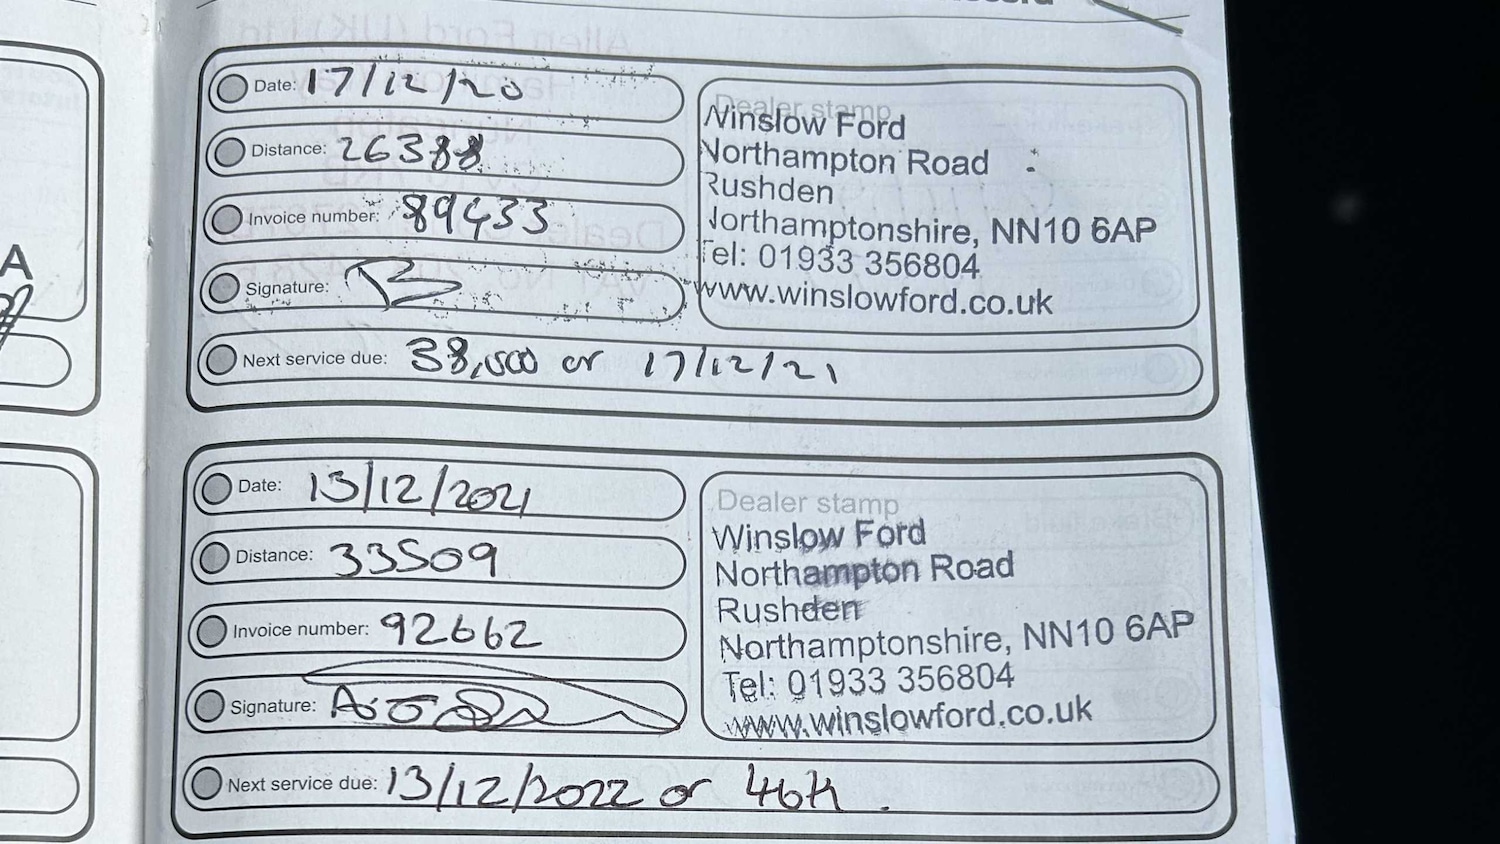 Date: 17/12/20
Distance: 26388
Invoice number: 89433
Signature:
Next service due: 38,000 or 17/12/21
Dealer stamp
Winslow Ford
Northampton Road
Rushden
Northamptonshire, NN10 6AP
Tel: 01933 356804
www.winslowford.co.uk
Date: 13/12/2021
Distance: 33509
Invoice number: 92662
Signature:
Next service due: 13/12/2022 or 46k.
Dealer stamp
Winslow Ford
Northampton Road
Rushden
Northamptonshire, NN10 6AP
Tel: 01933 356804
www.winslowford.co.uk
A